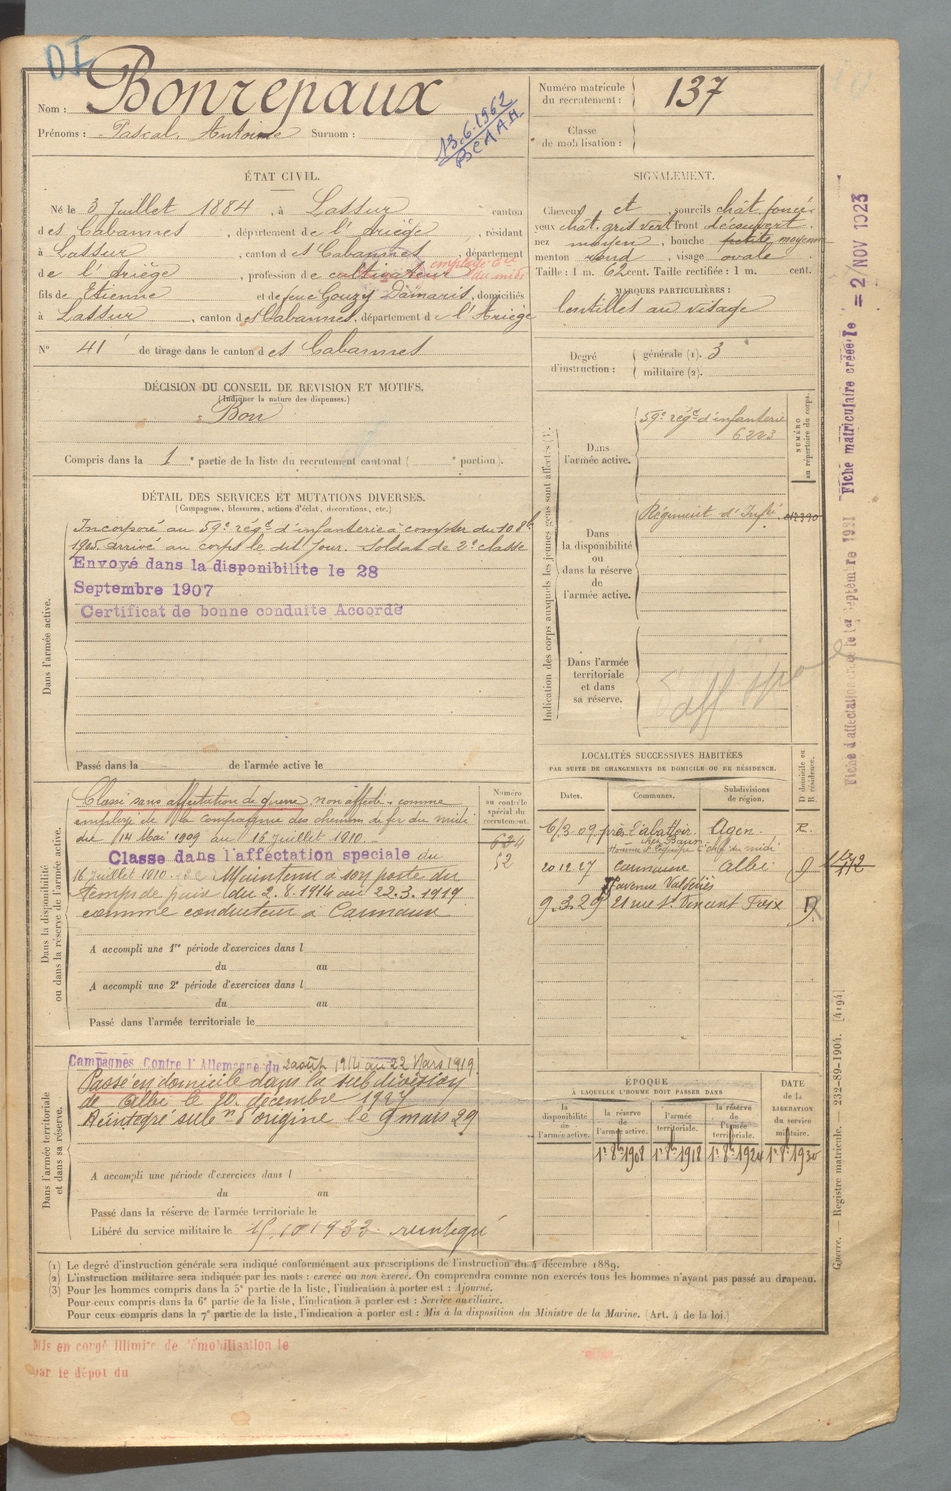 DI
Nom : Bonrepaux
Prénoms : Pascal, Antoine Surnom :
13.6.1962
BCAAM
Numéro matricule du recrutement : 137
Classe de mobilisation :
ÉTAT CIVIL.
Né le 3 Juillet 1884, à Lassur canton
des Cabannes, département de l'Ariège, résidant
à Lassur, canton des Cabannes, département
de l'Ariège, profession de cultivateur employé Cie du midi
fils de Etienne et de feue Gouzy Damaris, domiciliés
à Lassur, canton des Cabannes, département de l'Ariège
N° 41 de tirage dans le canton des Cabannes
SIGNALEMENT.
Cheveux et sourcils chât. foncé
yeux chât. gris vert, front découvert
nez moyen, bouche petite moyenne
menton rond, visage ovale
Taille : 1 m. 62 cent. Taille rectifiée : 1 m. cent.
MARQUES PARTICULIÈRES :
lentilles au visage
Degré d'instruction : générale (1). 3
militaire (2).
DÉCISION DU CONSEIL DE REVISION ET MOTIFS.
(Indiquer la nature des dispenses.)
Bon
Compris dans la 1e partie de la liste du recrutement cantonal ( e portion).
DÉTAIL DES SERVICES ET MUTATIONS DIVERSES.
(Campagnes, blessures, actions d'éclat, décorations, etc.)
Dans l'armée active.
Incorporé au 59e régt d'infanterie à compter du 10 8bre
1905 arrivé au corps le dit jour. Soldat de 2e classe
Envoyé dans la disponibilite le 28
Septembre 1907
Certificat de bonne conduite Accordé
Passé dans la de l'armée active le
Indication des corps auxquels les jeunes gens sont affectés
NUMÉRO au répertoire du corps.
Dans l'armée active.
59e régt d'infanterie
6223
Dans la disponibilité ou dans la réserve de l'armée active.
Régiment d'Infie
Dans l'armée territoriale et dans sa réserve.
LOCALITÉS SUCCESSIVES HABITÉES
PAR SUITE DE CHANGEMENTS DE DOMICILE OU DE RÉSIDENCE.
Dates. Communes. Subdivisions de région. D domicile ou R résidence.
6/3.09 près l'abattoir Agen. R.
20.12.27 Carmaux Albi D
avenue Valséries
9.3.29 21 rue St Vincent Foix D
Dans la disponibilité ou dans la réserve de l'armée active.
Numéro au contrôle spécial du recrutement.
634
52
Classé sans affectation de guerre, non affecté, comme
employé de la Compagnie des chemins de fer du midi
du 14 Mai 1909 au 16 Juillet 1910.
Classe dans l'afféctation speciale du
16 Juillet 1910. Maintenu à son poste du
temps de paix du 2.8.1914 au 22.3.1919
comme conducteur à Carmaux
A accompli une 1re période d'exercices dans l
du au
A accompli une 2e période d'exercices dans l
du au
Passé dans l'armée territoriale le
Dans l'armée territoriale et dans sa réserve.
Campagnes Contre l'Allemagne du 2 août 1914 au 22 Mars 1919
Passé en domicile dans la subdivision
de Albi le 20 décembre 1927
Réintégré subon d'origine le 9 mars 29
A accompli une période d'exercices dans l
du au
Passé dans la réserve de l'armée territoriale le
Libéré du service militaire le 15.10.1933
ÉPOQUE
À LAQUELLE L'HOMME DOIT PASSER DANS
la disponibilité de l'armée active.
la réserve de l'armée active.
l'armée territoriale.
la réserve de l'armée territoriale.
DATE de la LIBÉRATION du service militaire.
1r 8b 1908 1r 8b 1918 1r 8b 1924 1r 8b 1930
(1) Le degré d'instruction générale sera indiqué conformément aux prescriptions de l'instruction du 4 décembre 1889.
(2) L'instruction militaire sera indiquée par les mots : exercé ou non exercé. On comprendra comme non exercés tous les hommes n'ayant pas passé au drapeau.
(3) Pour les hommes compris dans la 5e partie de la liste, l'indication à porter est : Ajourné.
Pour ceux compris dans la 6e partie de la liste, l'indication à porter est : Service auxiliaire.
Pour ceux compris dans la 7e partie de la liste, l'indication à porter est : Mis à la disposition du Ministre de la Marine. (Art. 4 de la loi.)
Mis en congé illimité de démobilisation le
par le dépôt du
Fiche matriculaire créée le = 2 NOV 1923
Guerre. — Registre matricule. — 232-89-1904. [4194]